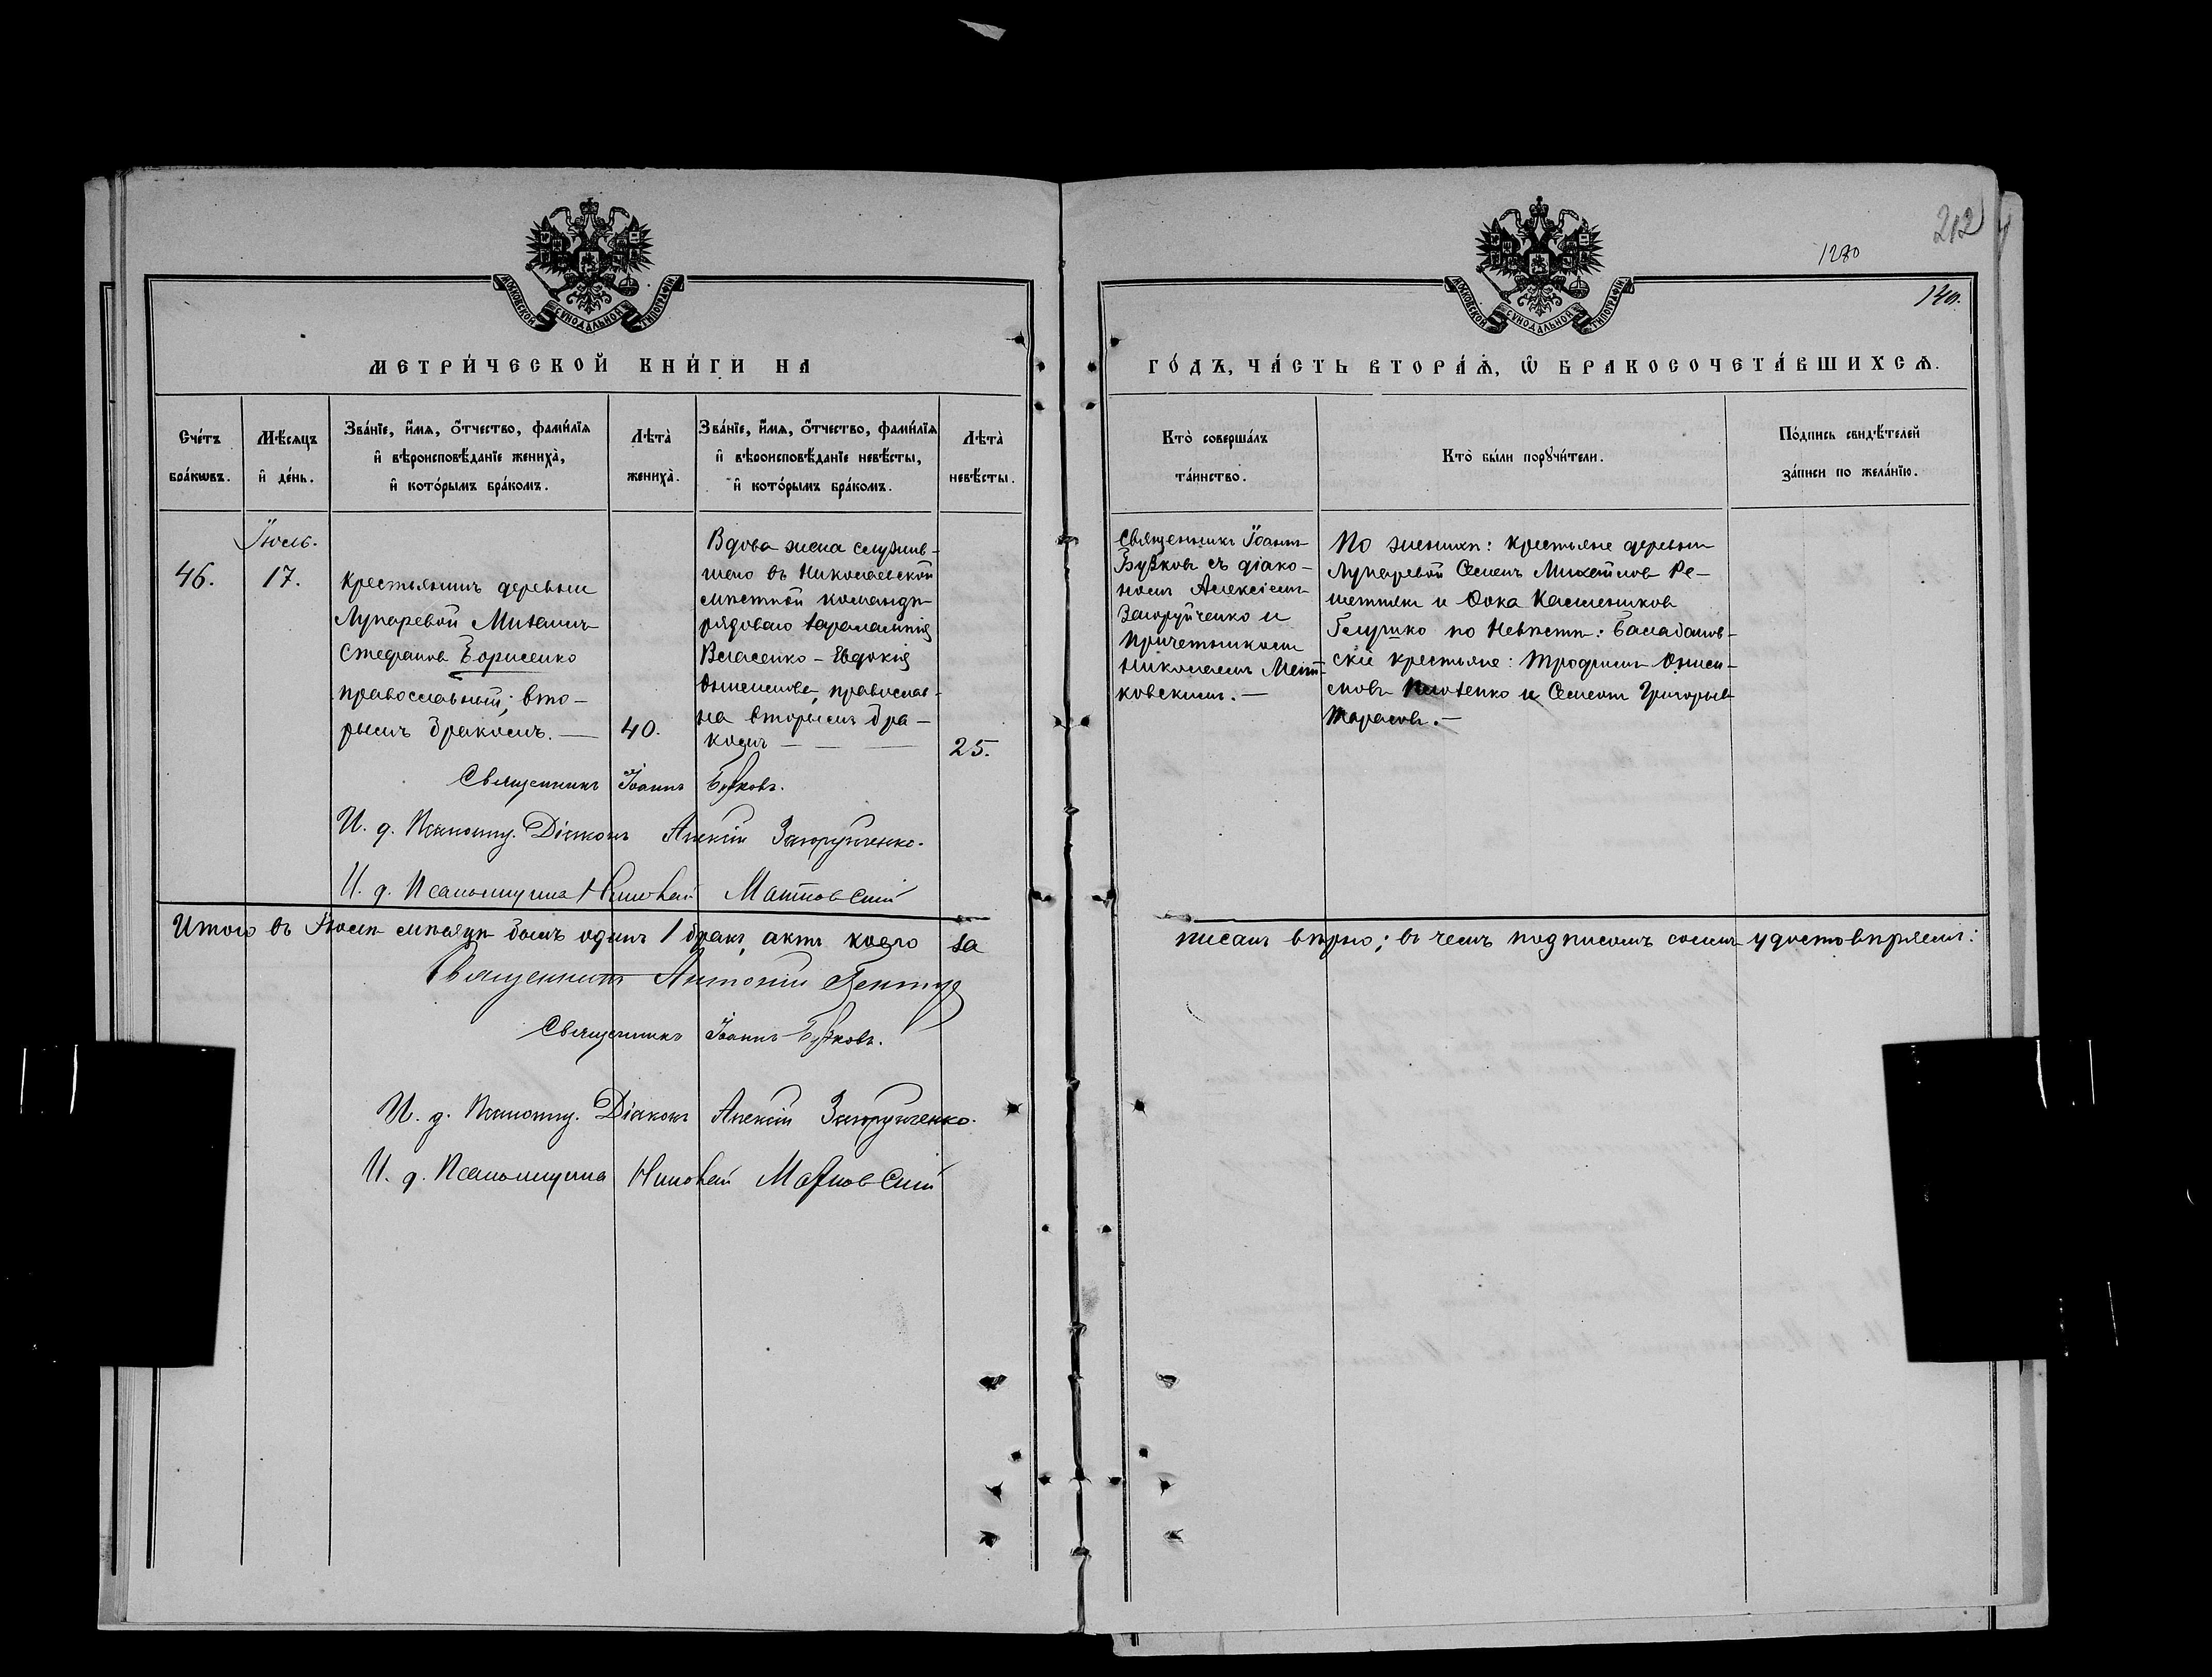 МОСКОВСКОЙ СѴНОДАЛЬНОЙ ТИПОГРАФІИ
МЕТРИ́ЧЕСКОЙ КНИ́ГИ НА
Сче́тъ бра́кѡвъ.
Мѣ́сяцъ и҆ де́нь.
Зва́нїе, и҆́мѧ, ѻ҆́тчество, фами́лїѧ
и҆ вѣроисповѣ́данїе жениха̀,
и҆ кото́рымъ бра́комъ.
Лѣта̀ жениха̀.
Зва́нїе, и҆́мѧ, ѻ҆́тчество, фами́лїѧ
и҆ вѣроисповѣ́данїе невѣ́сты,
и҆ кото́рымъ бра́комъ.
Лѣта̀ невѣ́сты.
46.
Іюль.
17.
Крестьянинъ деревни
Лупаревой
Стефановъ Борисенко
православный; вто-
рымъ бракомъ. —
40.
Вдова жена служив-
шаго въ Николаевской
мѣстной командѣ
рядоваго Харалампія
Власенко - Евдокія
Онисимова, православ-
на вторымъ бра-
комъ — — —
25.
Священникъ Іоаннъ Бужковъ.
И. д. Псаломщ. Діаконъ Алексій Загоруйченко.
И. д. Псаломщика Николай
Итого въ Іюлѣ мѣсяцѣ былъ одинъ 1 бракъ, актъ коего за
Священникъ Антоній
Священникъ Іоаннъ Бужковъ.
И. д. Псаломщ. Діаконъ Алексій Загоруйченко.
И. д. Псаломщика Николай
212
1280
140.
МОСКОВСКОЙ СѴНОДАЛЬНОЙ ТИПОГРАФІИ
ГО́ДЪ, ЧА́СТЬ ВТОРА́Ѧ, Ѡ҆ БРАКОСОЧЕТА́ВШИХСѦ.
Кто̀ соверша́лъ
та́инство.
Кто̀ бы́ли порꙋчи́тели.
По́дпись свидѣ́телей
за́писи по жела́нїю.
Священникъ Іоаннъ
Бужковъ съ діако-
номъ Алексіемъ
Загоруйченко и
Причетникомъ
Николаемъ
ковскимъ. —
По женихѣ: крестьяне деревни
Лупаревой Семенъ Михайловъ Ре-
шетнякъ и Фока
Глушко по Невѣстѣ: Балабанов-
скіе крестьяне: ТрофимъОниси-
мовъ и Симеонъ Григорьевъ
Тарасовъ. —
писанъ вѣрно; въ чемъ подписомъ своимъ удостовѣряемъ: